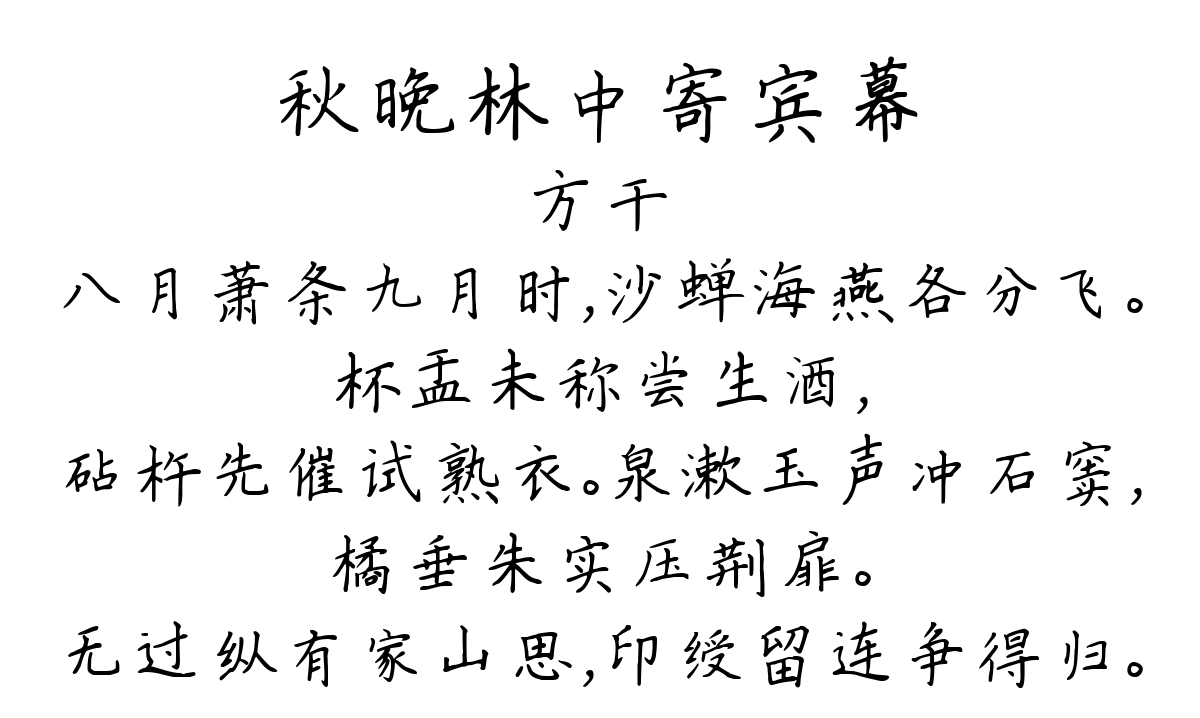 秋晚林中寄宾幕
方干
八月萧条九月时,沙蝉海燕各分飞。
杯盂未称尝生酒,
砧杵先催试熟衣。泉漱玉声冲石窦,
橘垂朱实压荆扉。
无过纵有家山思,印绶留连争得归。